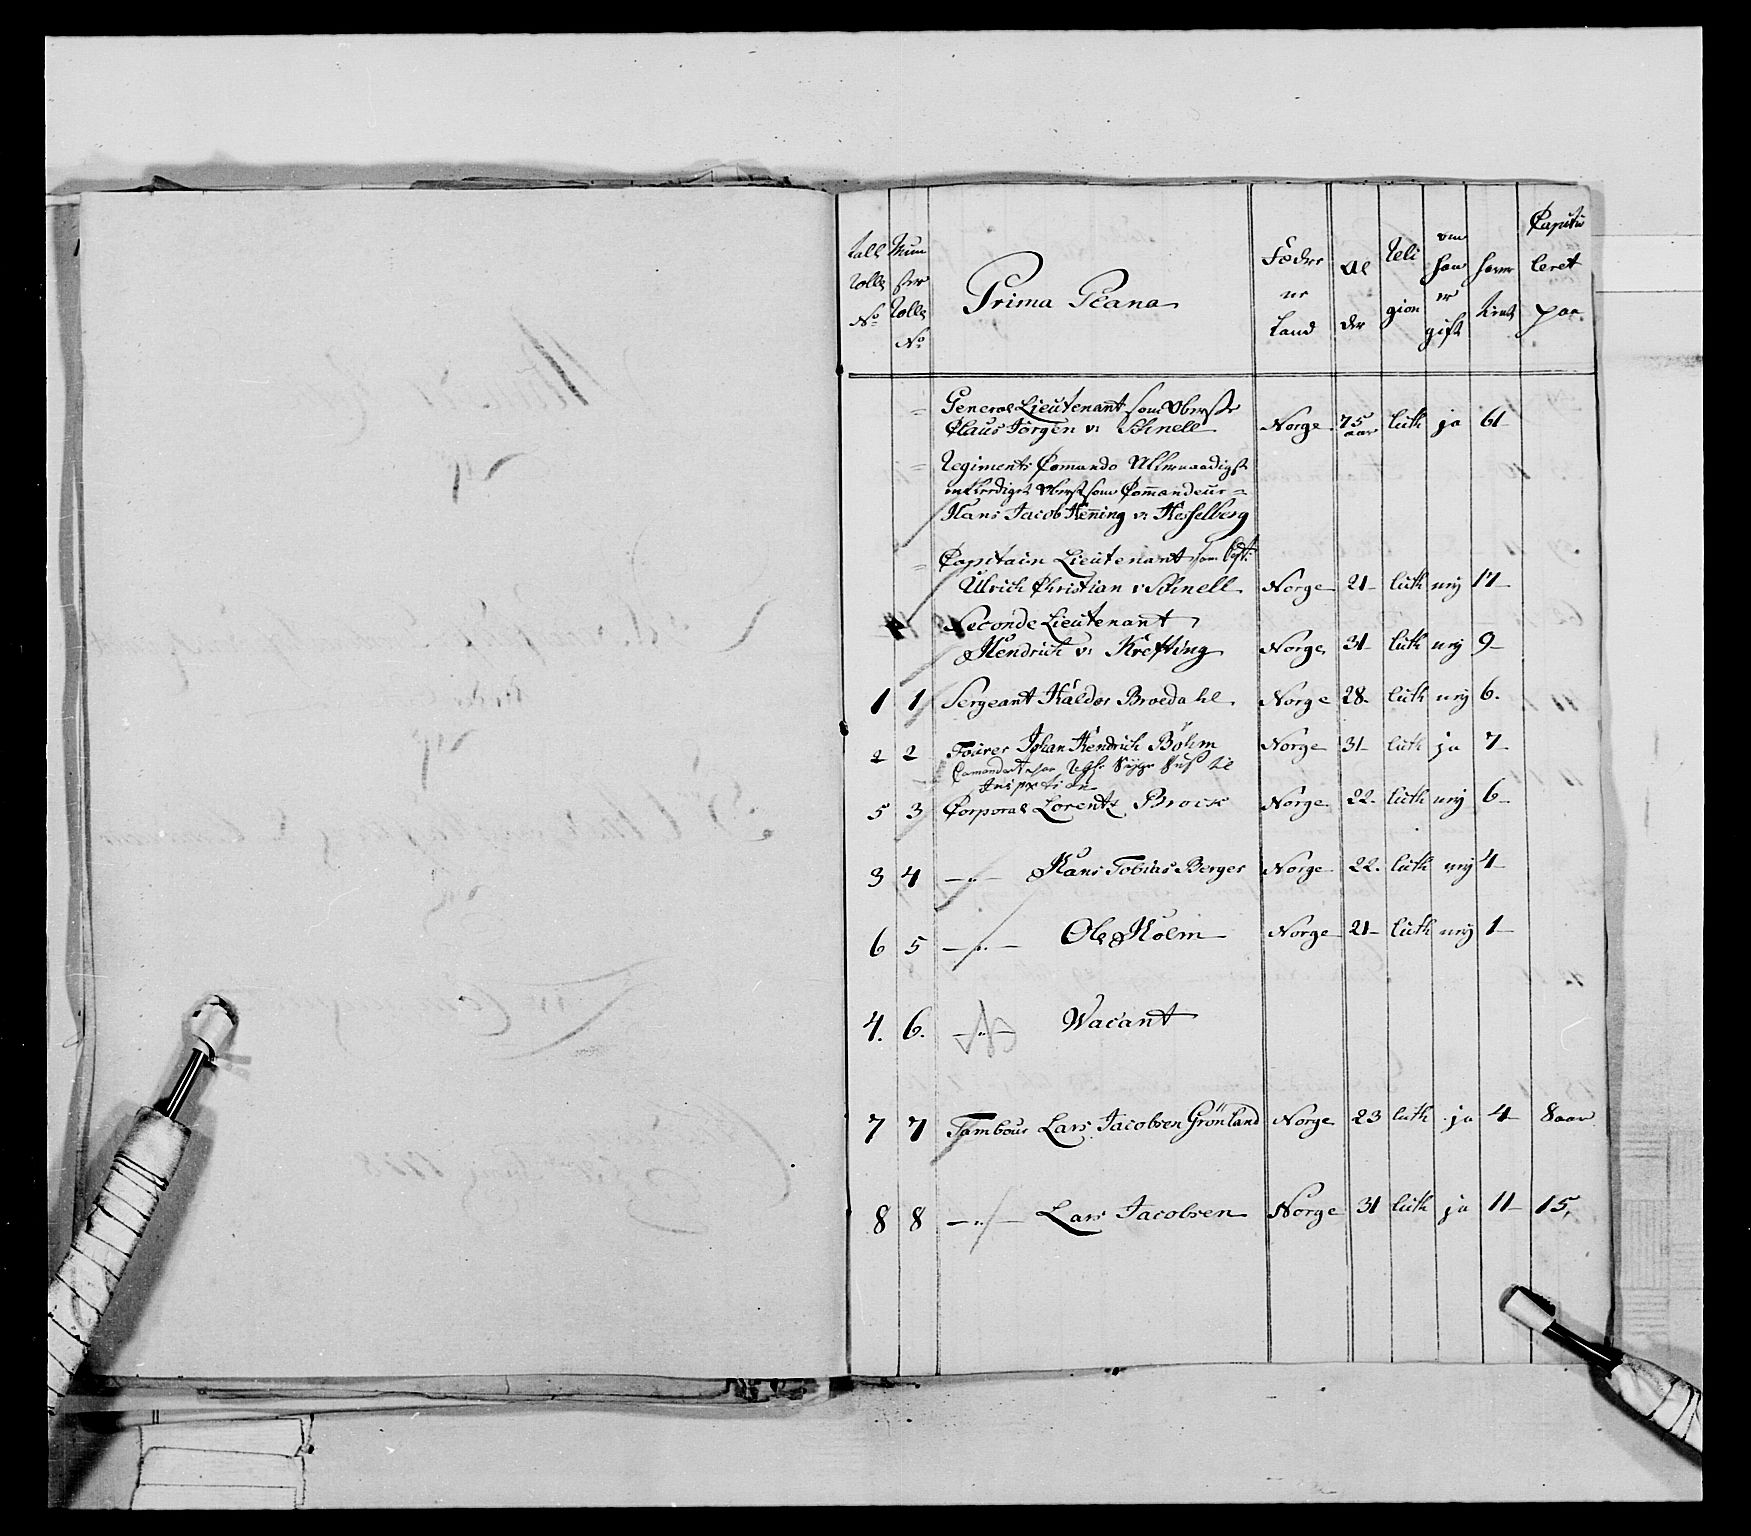 Rolle Rolle No
Mun ster Rolle No
Prima Plana
Føder ne Land
Al der
Reli gion
om han er gift
Capitu leret paa
General Lieutenant som Oberste
Claus Jørgen v: Schnell Norge 75 aar luth ja 61
Regiments Commando Allernaadigst
Oberst som Commandeur
Hans Jacob Henning v: Hesselberg
Capitain Lieutenant som Capt:
Ulrich Christian v: Schnell Norge 21 luth nej 17
Seconde Lieutenant
Hendrich v: Krefting Norge 31 luth nej 9
1 1 Sergeant Haldor Broedahl Norge 28. luth nej 6.
2 2 Fourer Johan Hendrich Böhm Norge 31 luth ja 7
5 3 Corporal Lorentz Brock Norge 22. luth nej 6
3 4 —"— Hans Tobias Berger Norge 22. luth nej 4
6 5 —"— Ole Holm Norge 21 luth nej 1
4. 6. —"— Vacant
7 7 Tambour Lars Jacobsen Grönland Norge 23 luth ja 4 8 aar
8 8 —"— Lars Jacobsen Norge 31 luth ja 11 15,